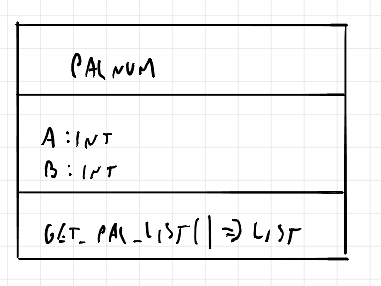 PALNUM
A:INT
B:INT
GET_PAL_LIST() => LIST